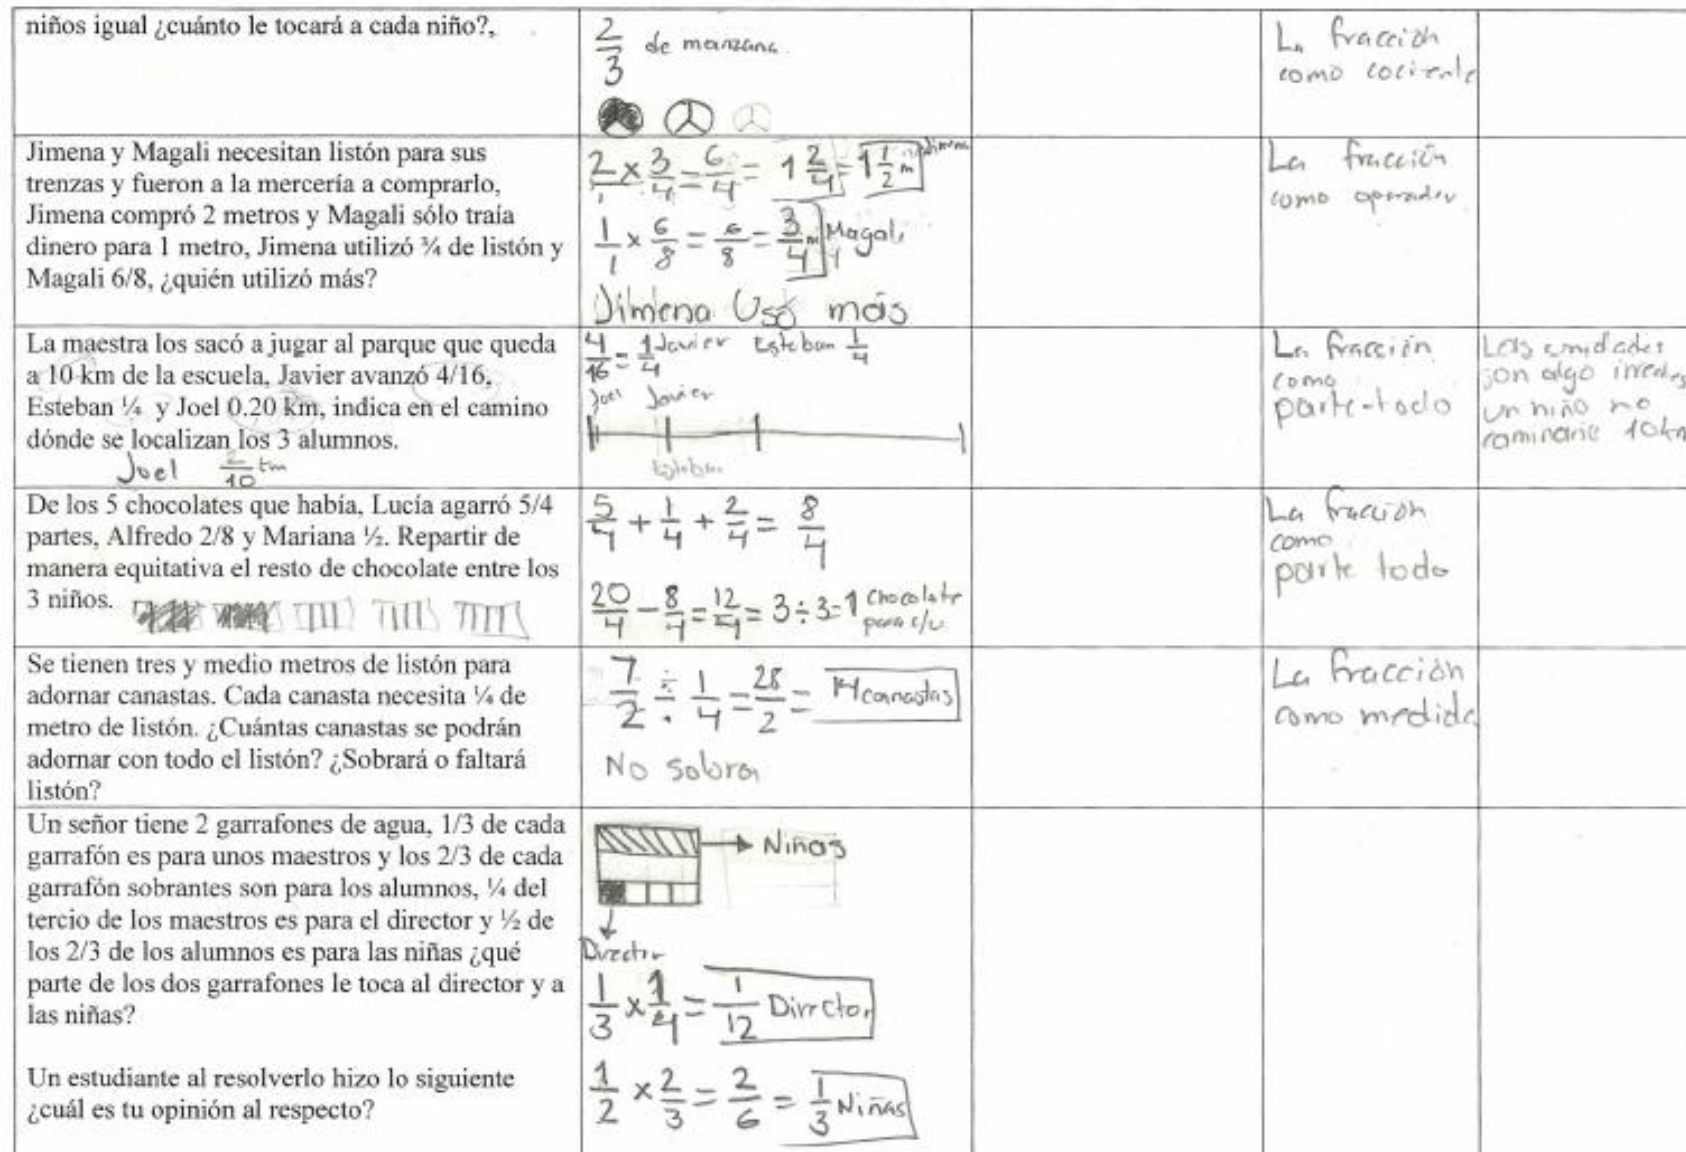 niños igual ¿cuánto le tocará a cada niño?,
2/3 de manzana
La fracción
como cociente
Jimena y Magali necesitan listón para sus
trenzas y fueron a la mercería a comprarlo,
Jimena compró 2 metros y Magali sólo traía
dinero para 1 metro, Jimena utilizó ¾ de listón y
Magali 6/8, ¿quién utilizó más?
2/1 × 3/4 = 6/4 = 1 2/4 = 1 1/2 m Jimena
1/1 × 6/8 = 6/8 = 3/4 m Magali
Jimena Usó más
La fracción
como operador
La maestra los sacó a jugar al parque que queda
a 10 km de la escuela, Javier avanzó 4/16,
Esteban ¼ y Joel 0.20 km, indica en el camino
dónde se localizan los 3 alumnos.
Joel 2/10 km
4/16 = 1/4 Javier Esteban 1/4
Joel Javier
Esteban
La fracción
como
parte-todo
Las unidades
son algo
un niño no
caminaría 10km
De los 5 chocolates que había, Lucía agarró 5/4
partes, Alfredo 2/8 y Mariana ½. Repartir de
manera equitativa el resto de chocolate entre los
3 niños.
5/4 + 1/4 + 2/4 = 8/4
20/4 - 8/4 = 12/4 = 3 ÷ 3 = 1 chocolate
para c/u
La fracción
como
parte todo
Se tienen tres y medio metros de listón para
adornar canastas. Cada canasta necesita ¼ de
metro de listón. ¿Cuántas canastas se podrán
adornar con todo el listón? ¿Sobrará o faltará
listón?
7/2 ÷ 1/4 = 28/2 = 14 canastas
No sobra
La fracción
como medida
Un señor tiene 2 garrafones de agua, 1/3 de cada
garrafón es para unos maestros y los 2/3 de cada
garrafón sobrantes son para los alumnos, ¼ del
tercio de los maestros es para el director y ½ de
los 2/3 de los alumnos es para las niñas ¿qué
parte de los dos garrafones le toca al director y a
las niñas?
Un estudiante al resolverlo hizo lo siguiente
¿cuál es tu opinión al respecto?
Niñas
Director
1/3 × 1/4 = 1/12 Director
1/2 × 2/3 = 2/6 = 1/3 Niñas